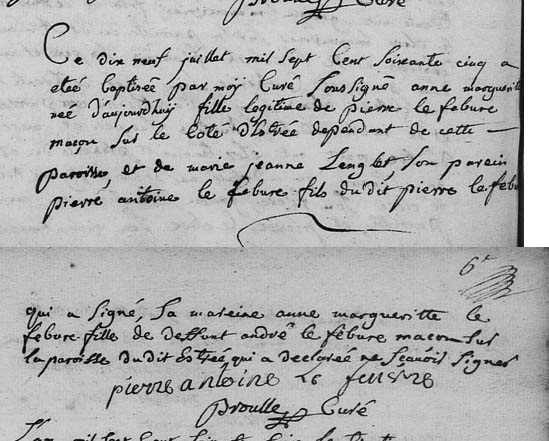 Proulle Curé
Ce dix neuf juillet mil sept Cent soixante cinq a
eteé baptisée par moÿ Curé soussigné anne margueritte
neé d'aujourdhuÿ fille legitime de pierre le febure
maçon sur le coté d'Estrée dependant de cette
paroisse, et de marie jeanne Lenglet son parein
pierre antoine le febure fils du dit pierre le febu
6e
qui a signé, sa mareine anne margueritte le
febure fille de deffunt andré le febure maçon sur
la paroisse du dit Estreé qui a declareé ne sçavoir signer
pierre antoine le feuvre
Proulle Curé
mil sept Cent soixante